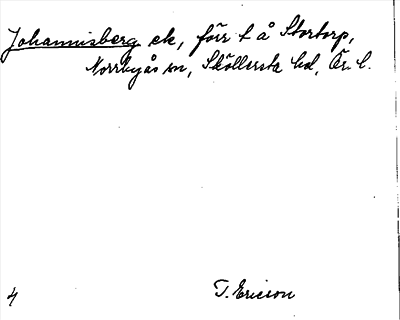 Johannisberg ek, förr t å Stortorp,
Norrbyås sn, Sköllersta hd, Ör. l.
4
T. Ericson